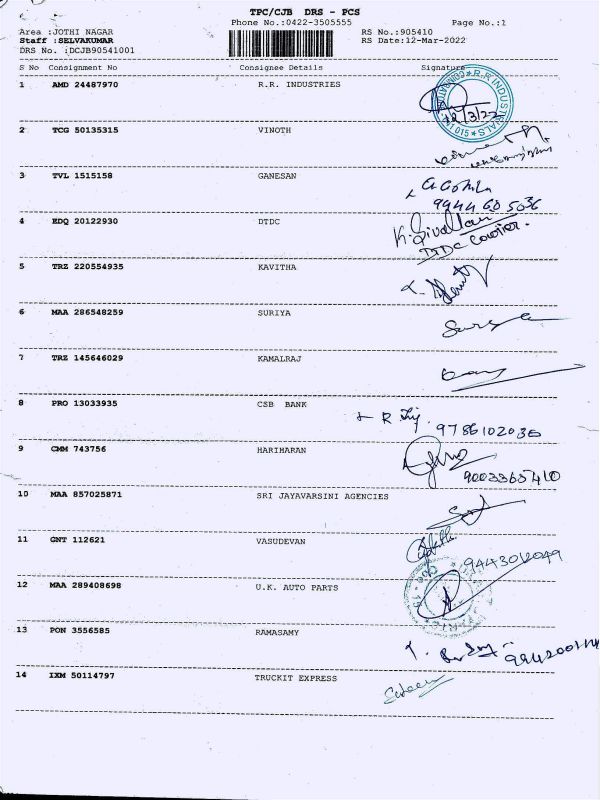 TPC/CJB DRS - PCS
Phone No.:0422-3505555 Page No.:1
Area :JOTHI NAGAR RS No.:905410
Staff :SELVAKUMAR RS Date:12-Mar-2022
DRS No. :DCJB90541001
S No Consignment No Consignee Details Signature
1 AMD 24487970 R.R. INDUSTRIES
12/3/22
2 TCG 50135315 VINOTH
3 TVL 1515158 GANESAN
9944 60 5036
4 EDQ 20122930 DTDC
DTDC Courier.
5 TRZ 220554935 KAVITHA
6 MAA 286548259 SURIYA
7 TRZ 145646029 KAMALRAJ
8 PRO 13033935 CSB BANK
9786102036
9 CMM 743756 HARIHARAN
9003365410
10 MAA 857025871 SRI JAYAVARSINI AGENCIES
11 GNT 112621 VASUDEVAN
9443012049
12 MAA 289408698 U.K. AUTO PARTS
13 PON 3556585 RAMASAMY
14 IXM 50114797 TRUCKIT EXPRESS